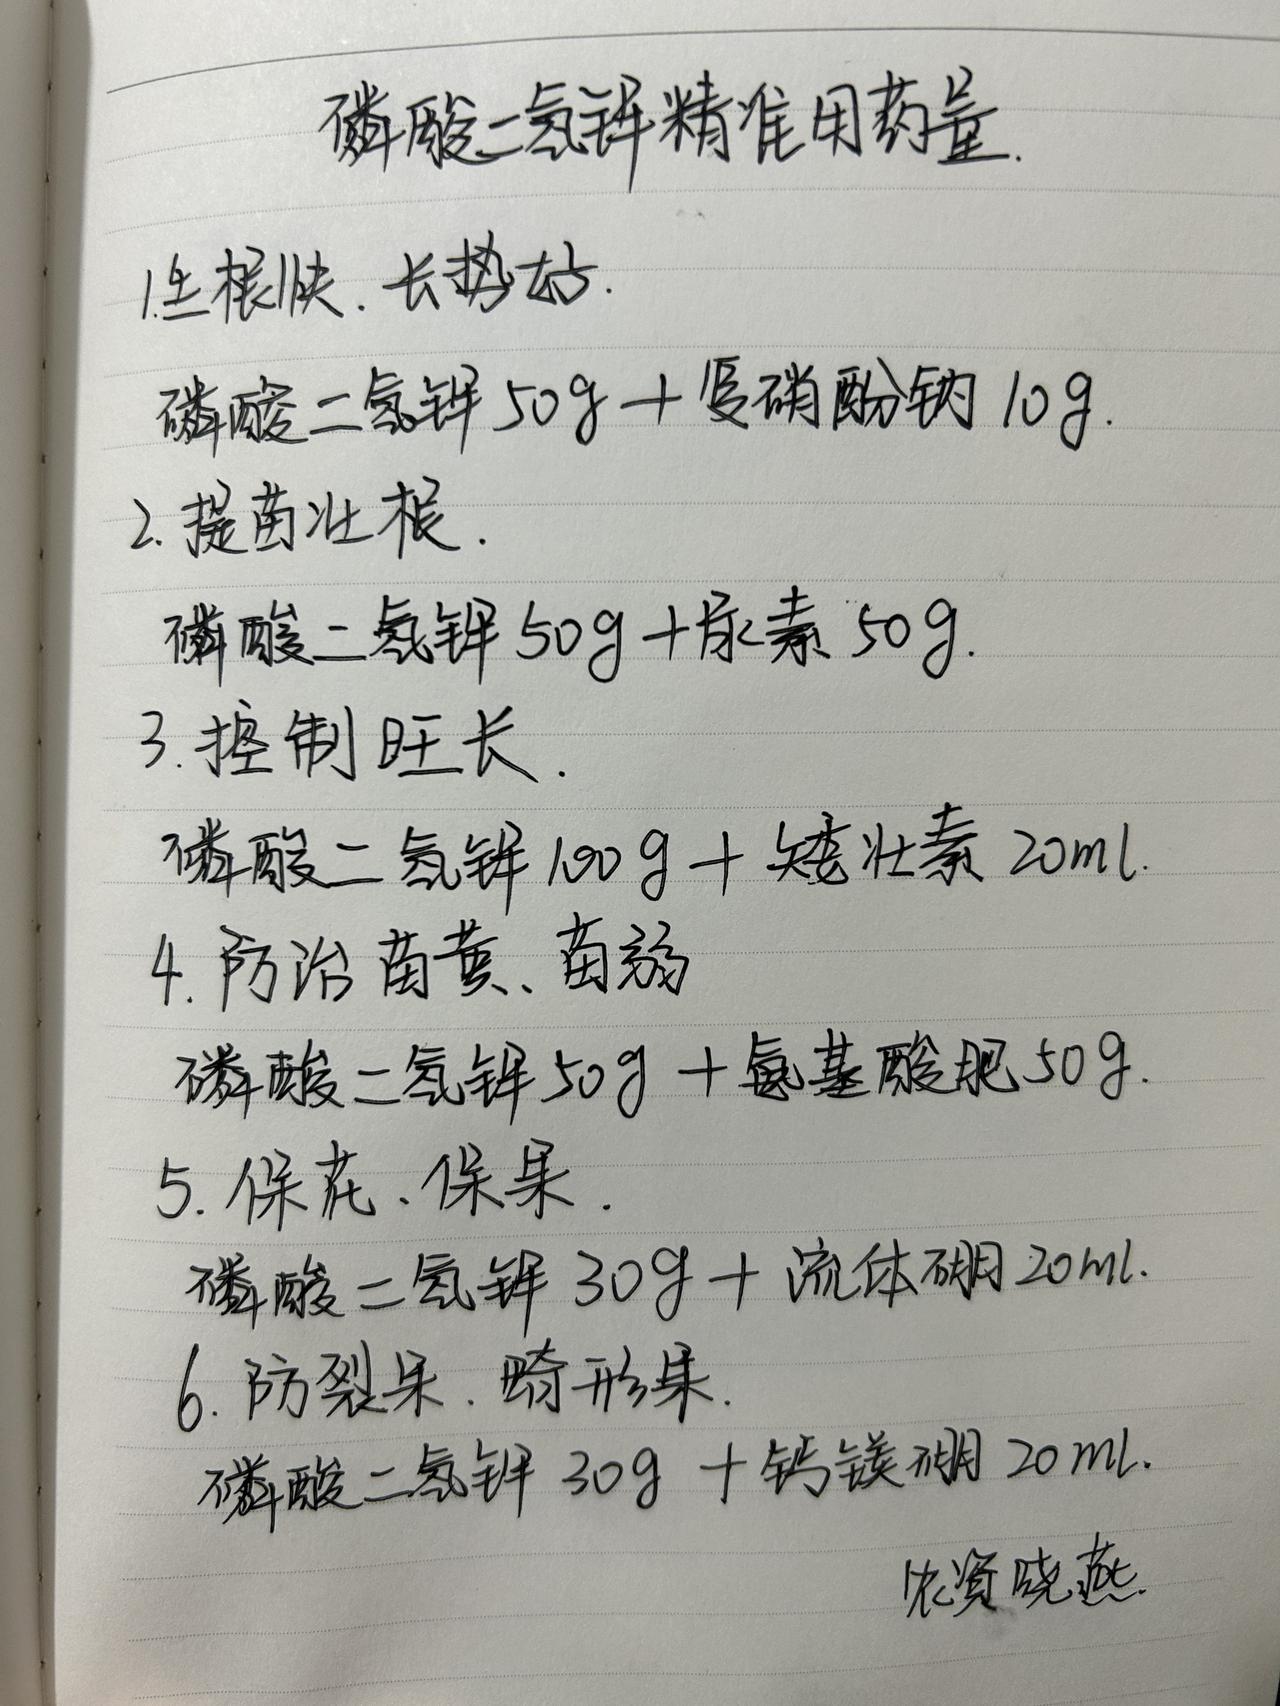 磷酸二氢钾精准用药量.
1.生根快.长势好.
磷酸二氢钾50g+复硝酚钠10g.
2.提苗壮根.
磷酸二氢钾50g+尿素50g.
3.控制旺长.
磷酸二氢钾100g+矮壮素20ml.
4.防治苗黄、苗弱
磷酸二氢钾50g+氨基酸肥50g.
5.保花、保果.
磷酸二氢钾30g+流体硼20ml.
6.防裂果.畸形果.
磷酸二氢钾30g+钙镁硼20ml.
农资晓燕.